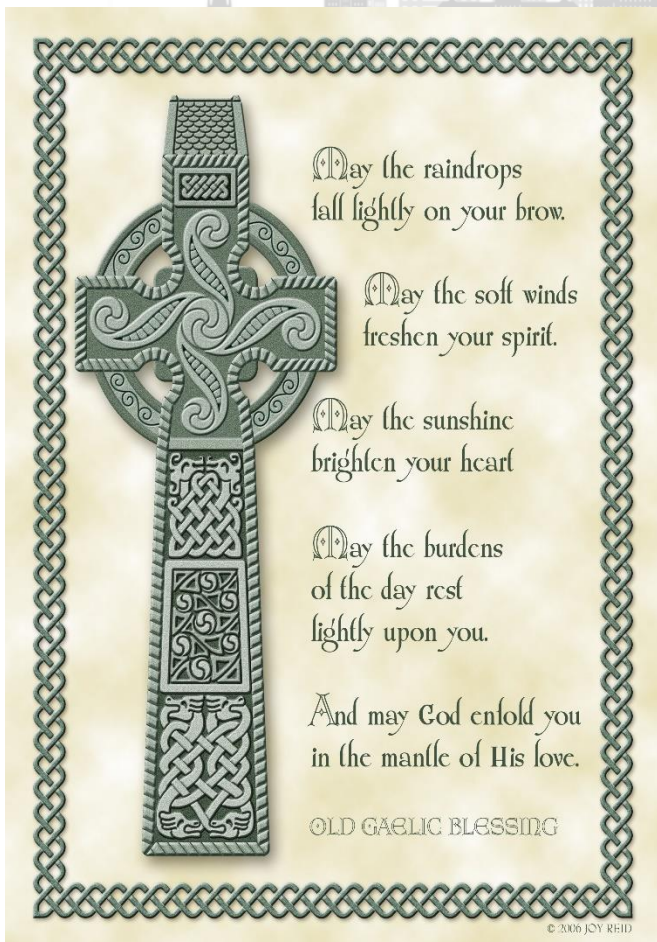 May the raindrops
fall lightly on your brow.
May the soft winds
freshen your spirit.
May the sunshine
brighten your heart
May the burdens
of the day rest
lightly upon you.
And may God enfold you
in the mantle of His love.
OLD GAELIC BLESSING
© 2006 JOY REID